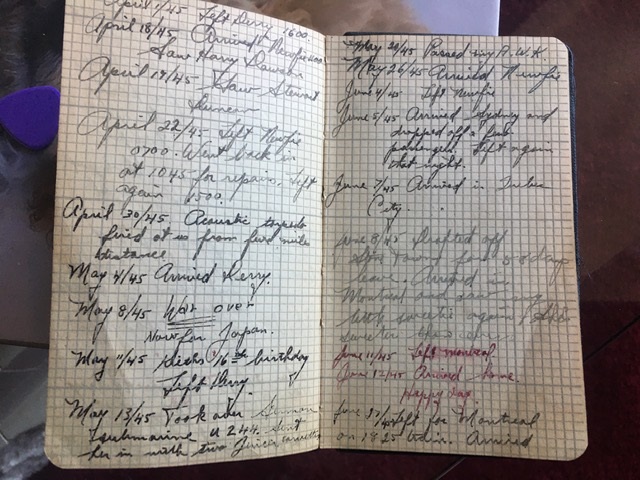 April 7/45 Left Derry 1600.
April 18/45 Arrived Newfie
Saw Harry Dawson
April 19/45 Saw Stewart
Duncan
April 22/45 Left Newfie
0700. Went back in
at 1045 for repairs. Left
again 1500.
April 30/45 Acoustic torpedo
fired at us from five miles
distance
May 4/45 Arrived Derry.
May 8/45 War over
Now for Japan.
May 11/45 16th birthday
Left Derry.
May 13/45 Took over German
submarine U 244. Sent
her in with two
May 24/45 Passed my
May 26/45 Arrived Newfie
June 4/45 Left Newfie
June 5/45 Arrived Sydney and
dropped off a few
passengers. Left again
that night.
June 7/45 Arrived in
City.
June 8/45 Drafted off
for 30 days
leave. Arrived in
Montreal and saw my
little sweetie again
sweeter than ever.
June 11/45 Left Montreal
June 12/45 Arrived home.
Happy day.
June left for Montreal
on 1825 train. Arrived